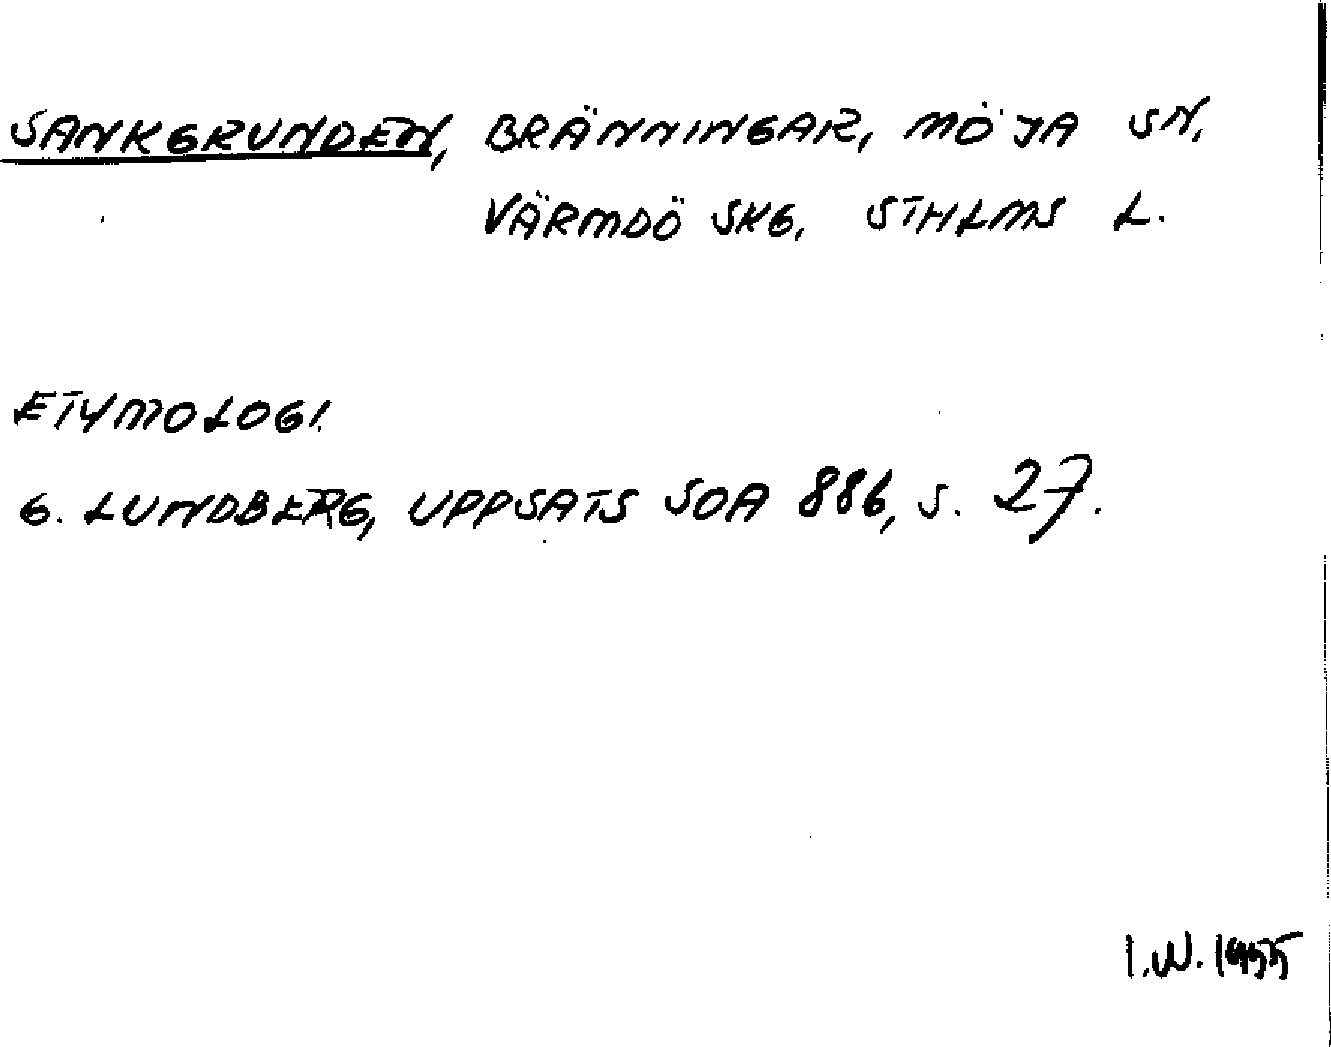 SANKGRUNDEN, BRÄNNINGAR, MÖJA SN,
VÄRMDÖ SKG, STHLMS L.
ETYMOLOGI.
G. LUNDBERG, UPPSATS SOA 886, S. 27.
I.W. 1955